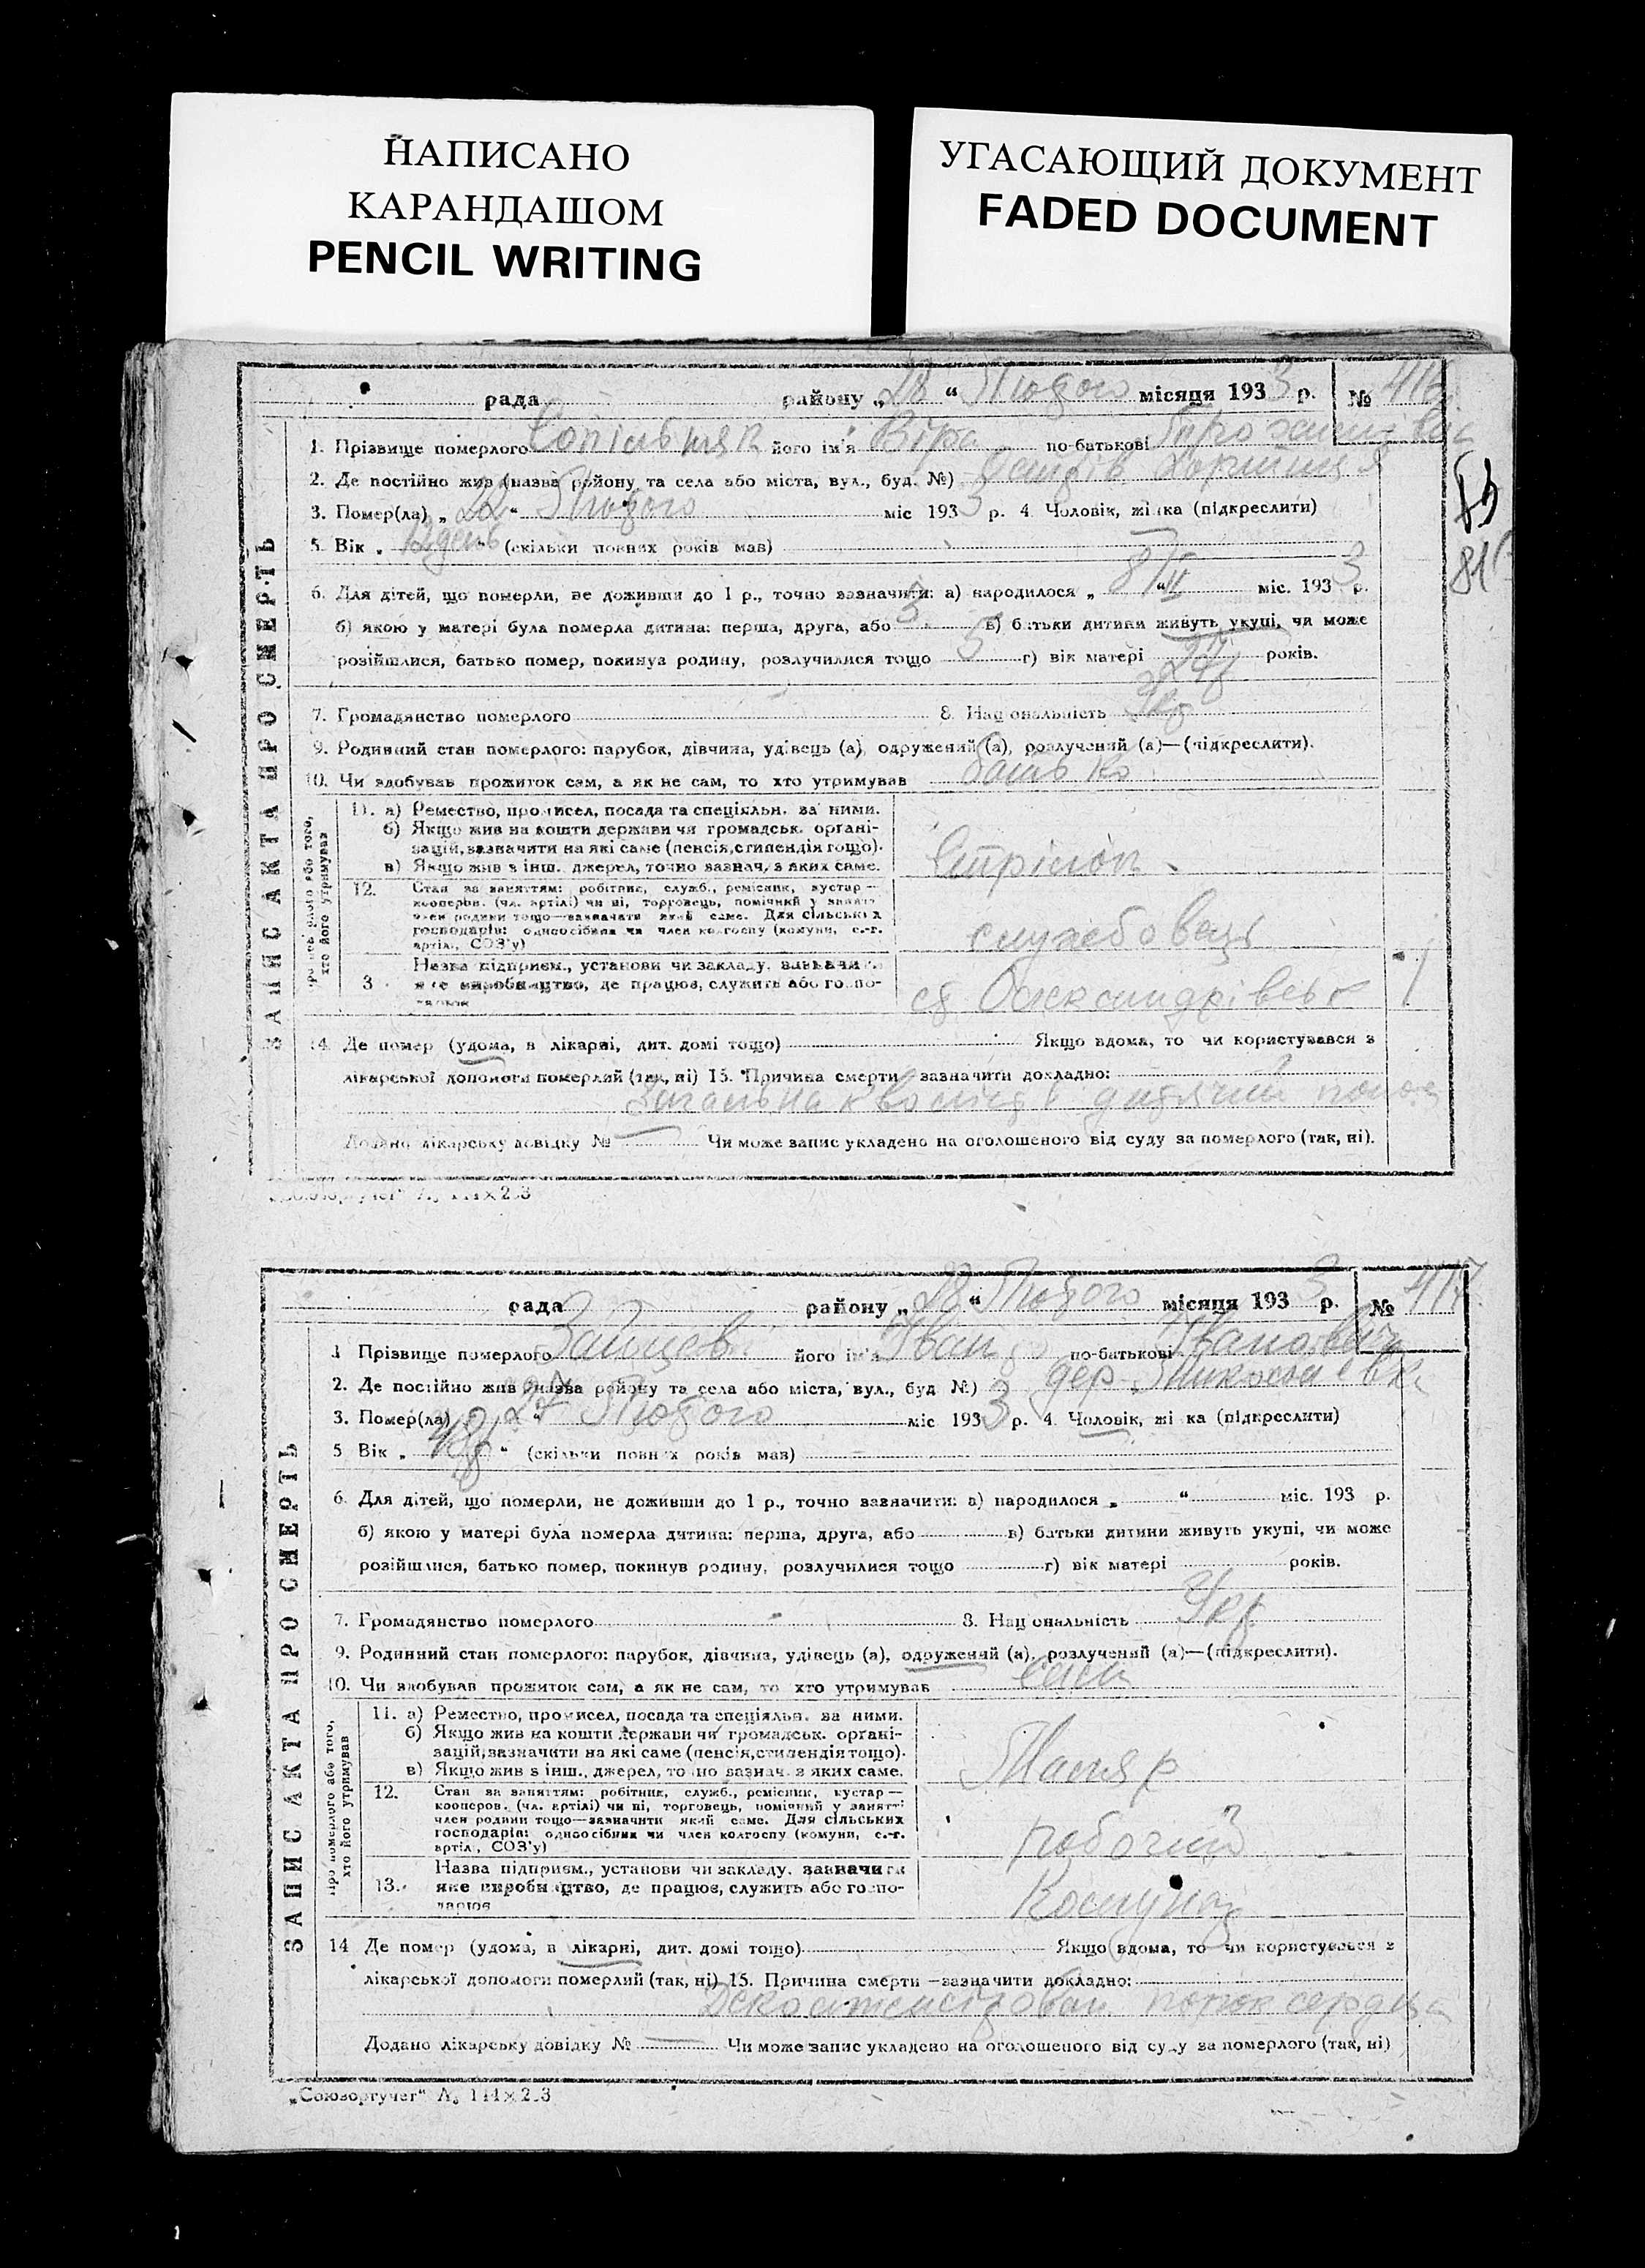 НАПИСАНО
КАРАНДАШОМ
PENCIL WRITING
УГАСАЮЩИЙ ДОКУМЕНТ
FADED DOCUMENT
рада району „28“ Лютого місяця 1933 р. № 416
ЗАПИС АКТА ПРО СМЕРТЬ
1. Прізвище померлого його ім'я Віра по-батькові
2. Де постійно жив (назва району та села або міста, вул., буд. №) Острів Хортиця
3. Помер(ла) „ “ Лютого міс 1933 р. 4. Чоловік, жінка (підкреслити)
5. Вік „ день “ (скільки повних років мав)
6. Для дітей, що померли, не доживши до 1 р., точно зазначити: а) народилося „8“ II міс. 1933 р.
б) якою у матері була померла дитина: перша, друга, або 3 в) батьки дитини живуть укупі, чи може
розійшлися, батько помер, покинув родину, розлучилися тощо г) вік матері років.
7. Громадянство померлого 8. Національність Укр
9. Родинний стан померлого: парубок, дівчина, удівець (а), одружений (а), розлучений (а)—(підкреслити).
10. Чи здобував прожиток сам, а як не сам, то хто утримував батько
Про померлого або того, хто його утримував
11. а) Ремество, промисел, посада та спеціяльн. за ними.
б) Якщо жив на кошти держави чи громадськ. орґані-
зацій, зазначити на які саме (пенсія, стипендія тощо).
в) Якщо жив з інш. джерел, точно зазнач, з яких саме.
Стрілок
12. Стан за заняттям: робітник, служб., ремісник, кустар—
кооперов. (чл. артілі) чи ні, торговець, помічний у занятті
член родини тощо—зазначати який саме. Для сільських
господарів: одноосібник чи член колгоспу (комуни, с.-г.
артіл., СОЗ'у)
службовець
Назва підприєм., установи чи закладу, зазначити
3 яке виробництво, де працює, служить або госпо-
ст Олександрівськ
14. Де помер (удома, в лікарні, дит. домі тощо) Якщо вдома, то чи користувався з
лікарської допомоги померлий (так, ні) 15. Причина смерти зазначити докладно:
Загальна кволість дитячий
Додано лікарську довідку № Чи може запис укладено на оголошеного від суду за померлого (так, ні).
рада району „28“ Лютого місяця 1933 р. № 417
ЗАПИС АКТА ПРО СМЕРТЬ
1 Прізвище померлого Зайцев його ім'я Іван по-батькові Іванович
2. Де постійно жив (назва району та села або міста, вул., буд №) дер. Николаевка
3. Помер(ла) „27 Лютого міс 1933 р. 4. Чоловік, жінка (підкреслити)
5 Вік „ 48 “ (скільки повних років мав)
6. Для дітей, що померли, не доживши до 1 р., точно зазначити: а) народилося „ “ міс. 193 р.
б) якою у матері була померла дитина: перша, друга, або в) батьки дитини живуть укупі, чи може
розійшлися, батько помер, покинув родину, розлучилися тощо г) вік матері років.
7. Громадянство померлого 8. Національність Укр
9. Родинний стан померлого: парубок, дівчина, удівець (а), одружений (а), розлучений (а)—(підкреслити).
10. Чи здобував прожиток сам, а як не сам, то хто утримував сам
Про померлого або того, хто його утримував
11. а) Ремество, промисел, посада та спеціяльн. за ними.
б) Якщо жив на кошти держави чи громадськ. орґані-
зацій, зазначити на які саме (пенсія, стипендія тощо).
в) Якщо жив з інш., джерел, точно зазнач. з яких саме.
Маляр
12. Стан за заняттям: робітник, служб., ремісник, кустар—
кооперов. (чл. артілі) чи ні, торговець, помічний у занятті
член родини тощо—зазначити який саме. Для сільських
господарів: одноосібник чи член колгоспу (комуни, с.-г.
артіл., СОЗ'у)
робочий
Назва підприєм., установи чи закладу, зазначити
13. яке виробництво, де працює, служить або госпо-
дарює
Комунар
14 Де помер (удома, в лікарні, дит. домі тощо) Якщо вдома, то чи користувався з
лікарської допомоги померлий (так, ні) 15. Причина смерти —зазначити докладно:
Декомпенсирован порок сердца
Додано лікарську довідку № Чи може запис укладено на оголошеного від суду за померлого (так, ні)
„Союзоргучет“